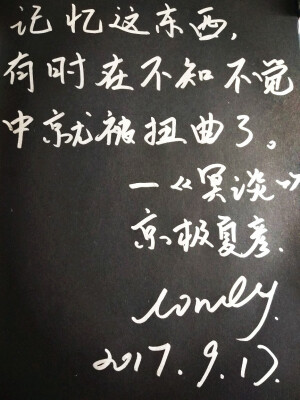 记忆这东西,
有时在不知不觉
中就被扭曲了。
—《冥谈》
京极夏彦.
lonely.
2017.9.17.